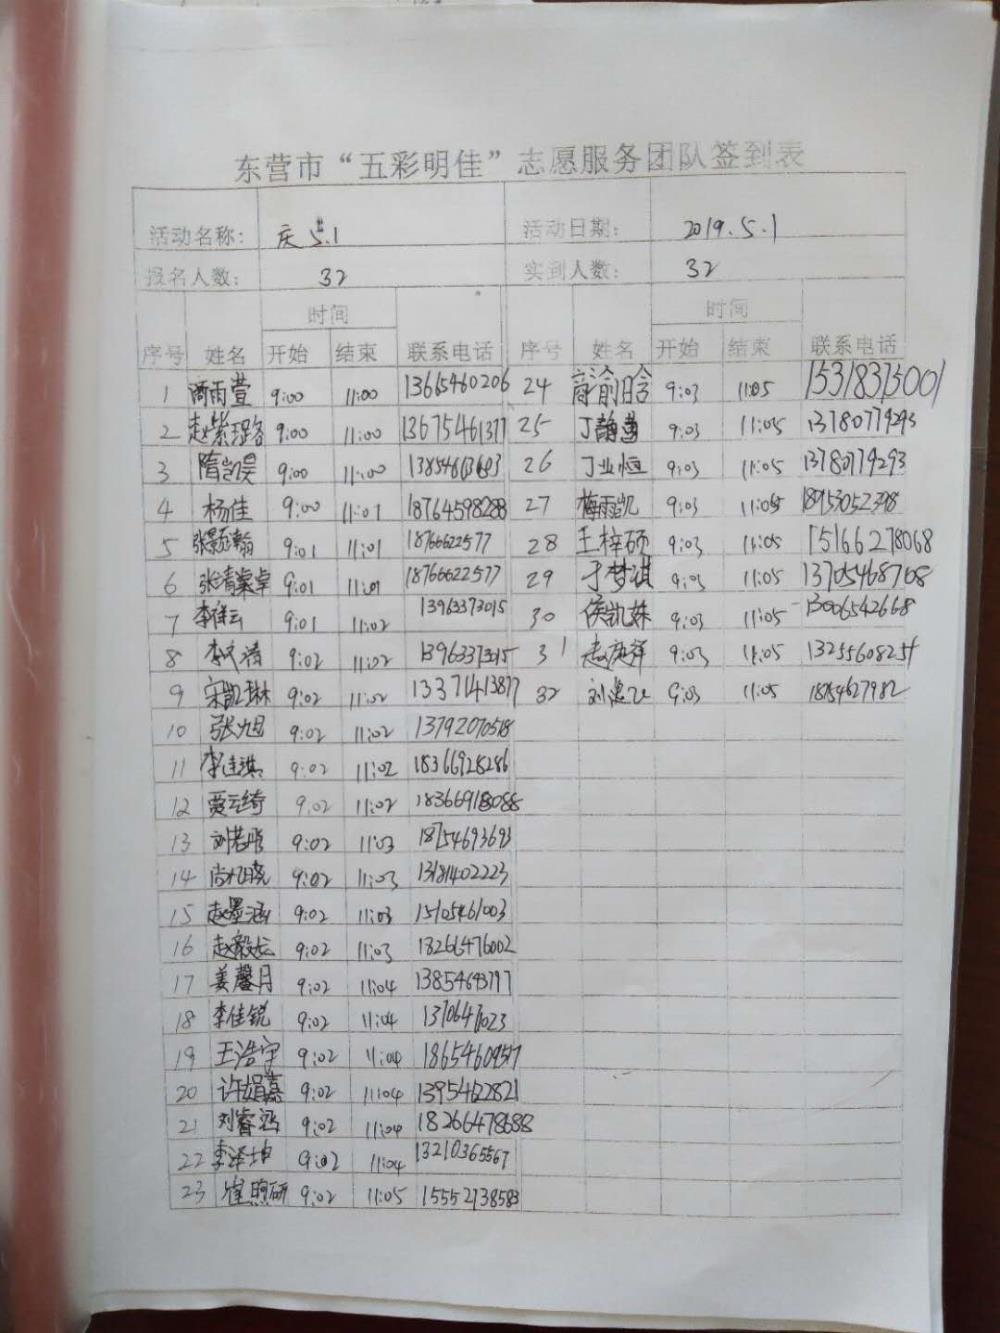 东营市“五彩明佳”志愿服务团队签到表
活动名称: 庆5.1 活动日期: 2019.5.1
报名人数: 32 实到人数: 32
时间 时间
序号 姓名 开始 结束 联系电话 序号 姓名 开始 结束 联系电话
1 商雨萱 9:00 11:00 13665460206 24 9:03 11:05 15318315001
2 9:00 11:00 13675461377 25 丁静菡 9:03 11:05 13780779293
3 隋凯昊 9:00 11:00 26 丁业恒 9:03 11:05 13780779293
4 杨佳 9:00 11:01 18764598288 27 梅雨凯 9:03 11:05 18953052398
5 张颢瀚 9:01 11:01 18766622577 28 王梓硕 9:03 11:05 15166278068
6 张清粲卓 9:01 11:01 18766622577 29 于梦琪 9:03 11:05 13705468768
7 9:01 11:02 13963373015 30 侯凯姝 9:03 11:05 13006542668
8 9:02 11:02 31 赵庚祥 9:03 11:05 13255608254
9 宋凯琳 9:02 11:02 13371413877 32 9:03 11:05 18754627982
10 张旭 9:02 11:02 13792070518
11 李佳淇 9:02 11:02 18366928286
12 贾云绮 9:02 11:02 18366918088
13 刘若彤 9:02 11:03 18754693693
14 9:02 11:03 13181402223
15 赵墨涵 9:02 11:03 15105461003
16 赵毅 9:02 11:03 18266476002
17 姜馨月 9:02 11:04 13854643797
18 李佳锐 9:02 11:04
19 王浩宇 9:02 11:04 18654609517
20 许娟嘉 9:02 11:04 13954622821
21 刘睿涵 9:02 11:04 18266478688
22 李泽坤 9:02 11:04 13210365567
23 崔照研 9:02 11:05 15552138583